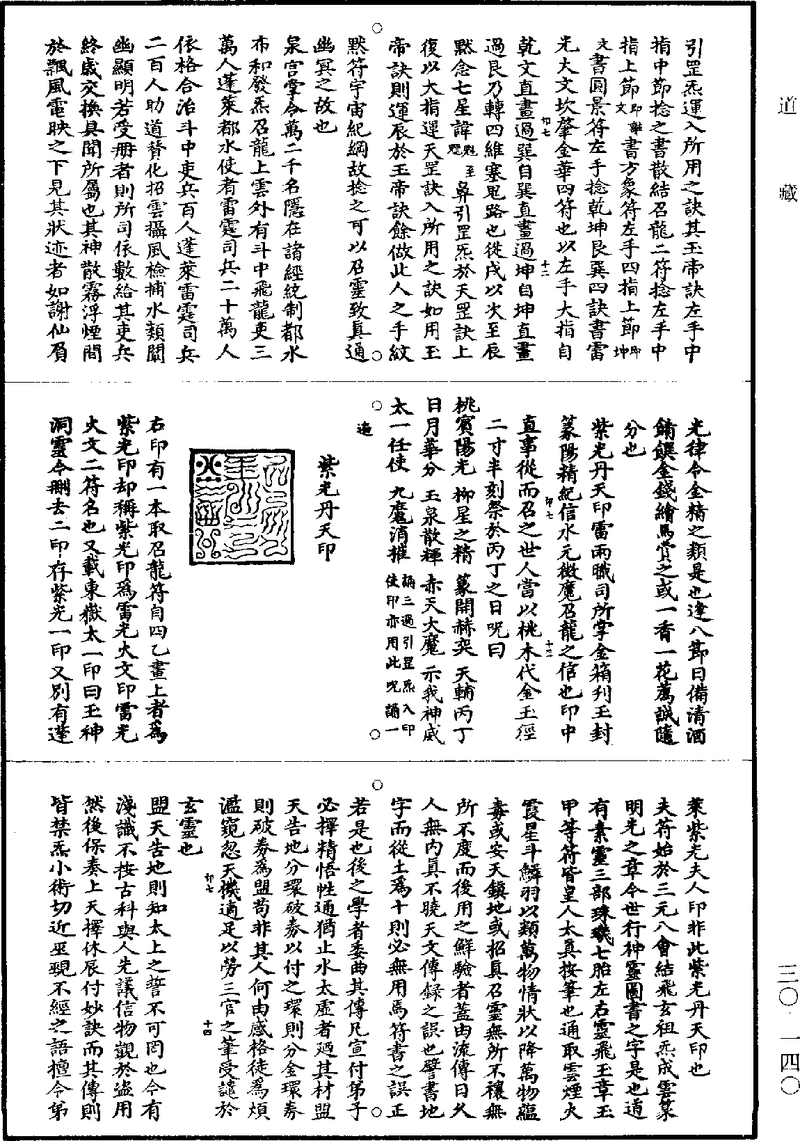 道藏
三〇·一四〇
引罡炁運入所用之訣其玉帝訣左手中
指中節捻之書散結召龍二符捻左手中
指上節即離文書方象符左手四指上節即坤
文書圓景符左手捻乾坤艮巽四訣書雷
光大文坎肇金華四符也以左手大指自
乾文直畫過巽自巽直畫過坤自坤直畫
印七 十二
過艮乃轉四維塞鬼路也從戌以次至辰
默念七星諱魁至鼻引罡炁於天罡訣上
復以大指運天罡訣入所用之訣如用玉
帝訣則運辰於玉帝訣餘倣此人之手紋
黙符宇宙紀綱故捻之可以召靈致真通
幽冥之故也
泉宮掌令萬二千名隱在諸經統制都水
布和發炁召龍上雲外有斗中飛龍吏三
萬人蓬萊都水使者雷霆司兵二十萬人
依格合治斗中吏兵百人蓬萊雷霆司兵
二百人助道贊化招雲攝風檢捕水類關
幽顯明若受册者則所司依數給其吏兵
終歲交換具聞所屬也其神散霧浮煙間
於飄風電映之下見其狀迹者如謝仙眉
光律令金精之類是也逢八節日備清酒
鋪饌金錢繪馬賞之或一香一花薦誠隨
分也
紫光丹天印雷雨職司所掌金箱刋玉封
篆陽精紀信水元攝魔召龍之信也印中
印七 十三
直事從而召之世人當以桃木代金玉徑
二寸半刻祭於丙丁之日呪曰
桃賓陽光 柳星之精 篆開赫奕 天輔丙丁
日月華分 玉泉散輝 赤天大魔 示我神威
太一任使 九魔消摧 誦三過引罡炁入印使印亦用此呪誦一
遍
紫光丹天印
右印有一本取召龍符自四乙畫上者爲
紫光印却稱紫光印爲雷光大文印雷光
火文二符名也又載東嶽太一印曰玉神
洞靈今刪去二印存紫光一印又别有蓬
萊紫光夫人印非此紫光丹天印也
夫符始於三元八會結飛玄祖炁成雲篆
明光之章今世行神靈圖書之字是也逍
有素靈三部琭璣七胎左右靈飛玉章玉
甲等符皆皇人太真按筆也通取雲煙火
霞星斗鱗羽以類萬物情狀以降萬物蘊
毒或安天鎮地或招真召靈無所不禳無
所不度而後用之鮮驗者蓋由流傳日久
人無内真不曉天文傳録之誤也譬書地
字而從土爲十則必無用焉符書之誤正
若是也後之學者委曲其傳凡宣付弟子
必擇精悟性通猶止水太虚者廼其材盟
天告地分環破券以付之環則分金環券
則破券爲盟苟非其人何由感格徒為煩
濫窺忽天機適足以勞三官之筆受譴於
印七 十四
玄靈也
盟天告地則知太上之誓不可罔也今有
淺識不按古科與人先議信物觀於盜用
然後保奏上天擇休辰付妙訣而其傳則
皆禁炁小術切近巫覡不經之語擅令弟